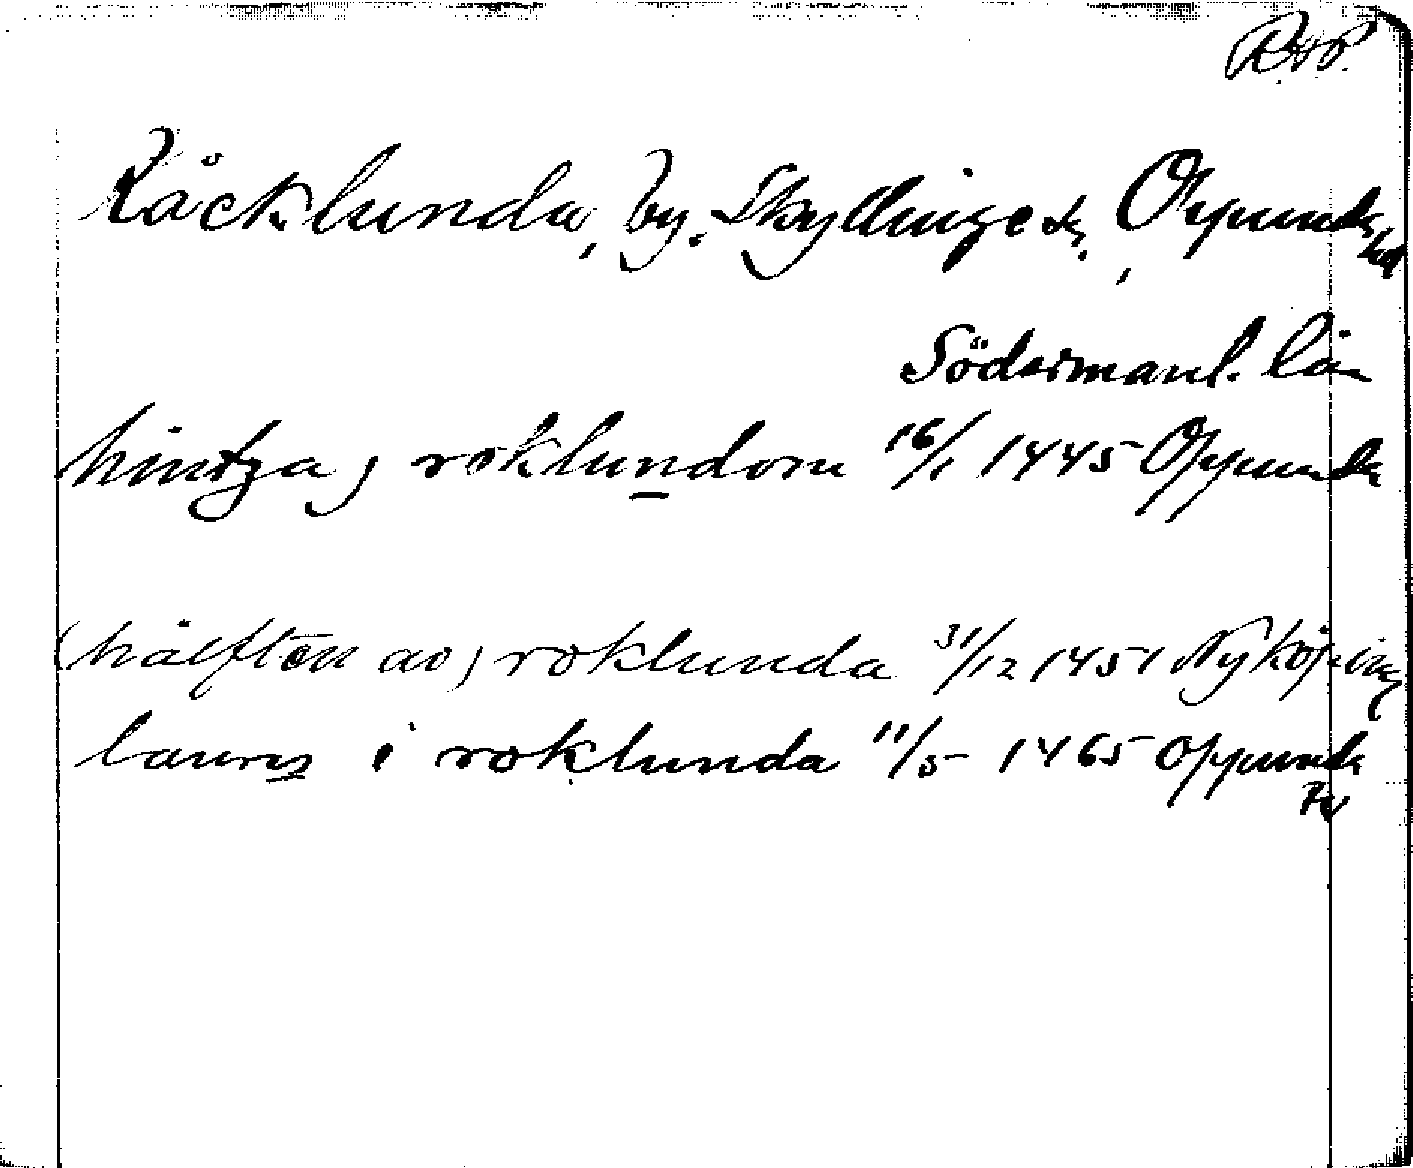 RAP.
Råcklunda, by. Skyllinge sn., Oppunda hd
Södermanl. län
hintza) roklundom 16/1 1445 Oppunda
(hälften av) roklunda 31/12 1451 Nyköping
laurns i roklunda 11/5 1465 Oppunda